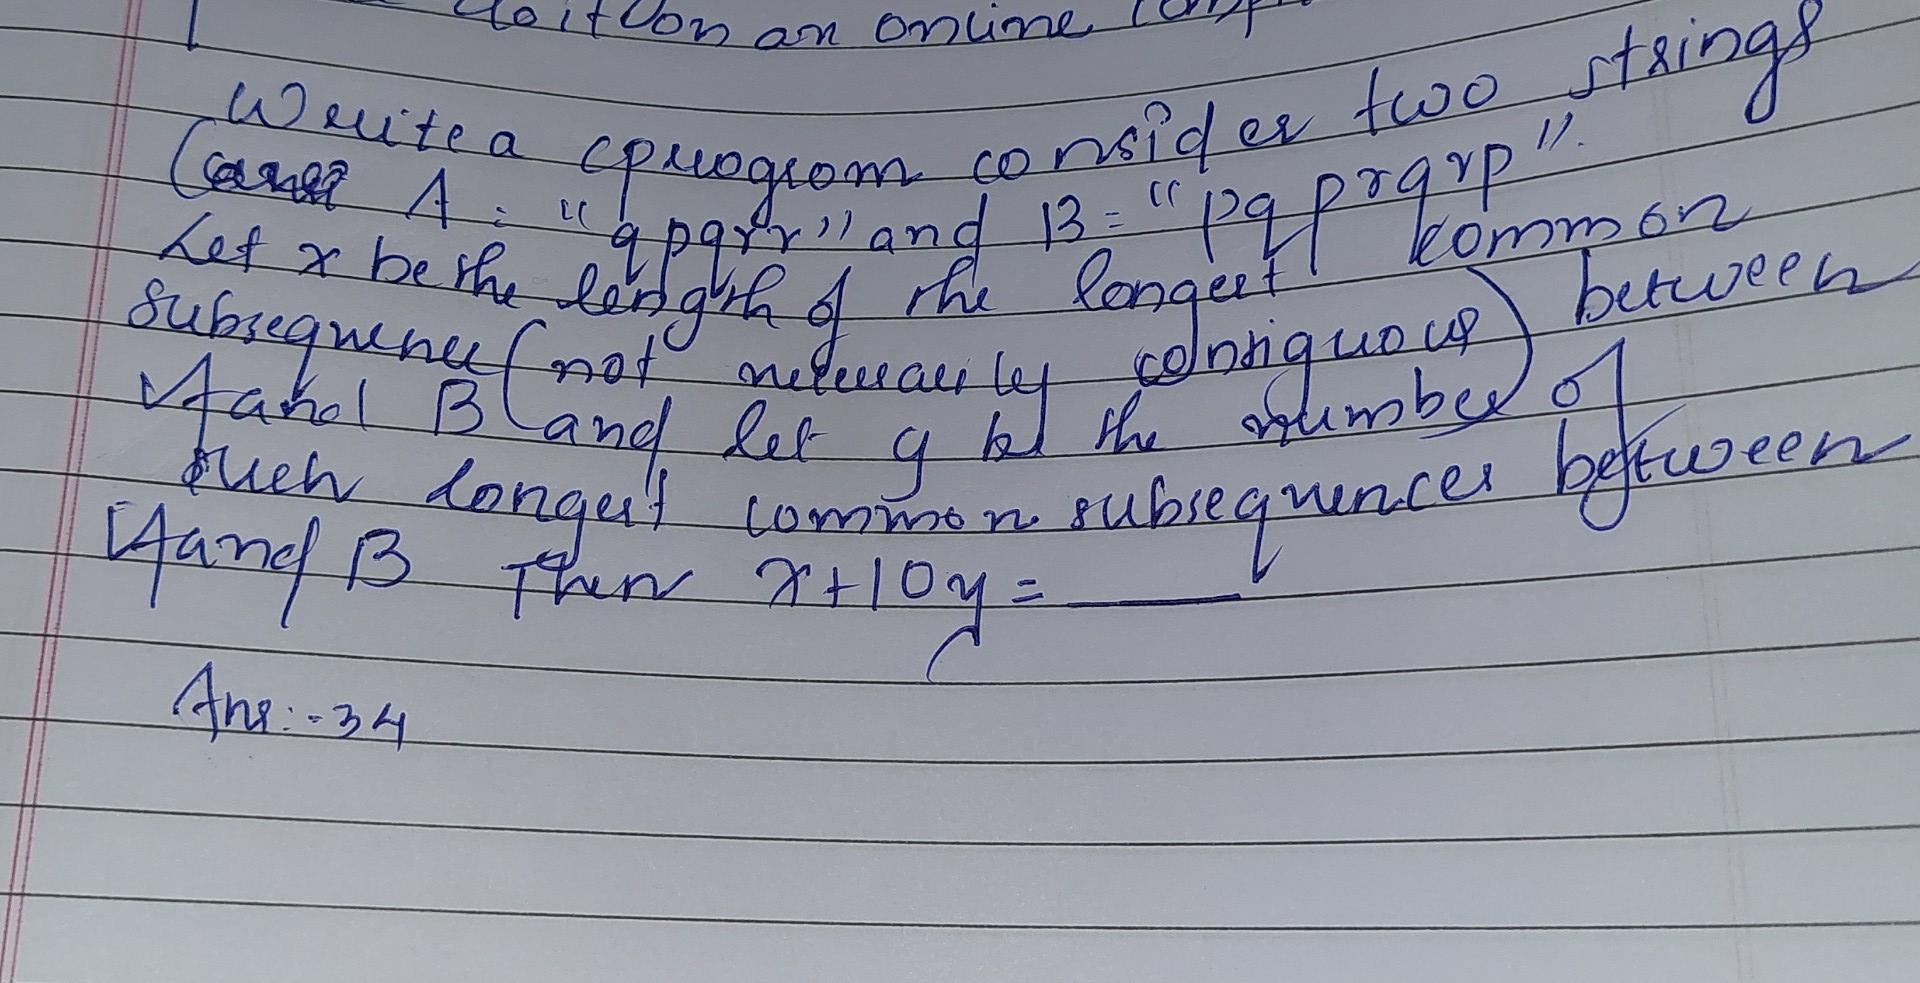 do it on an online comp
Write a cprogrom consider two strings
A: "qpqrr" and B = "pqprqrp".
Let x be the length of the longest common
subsequence (not necessarily contiguous) between
A and B and let y be the number of
such longest common subsequences between
A and B Then x+10y = ____
Ans:-34